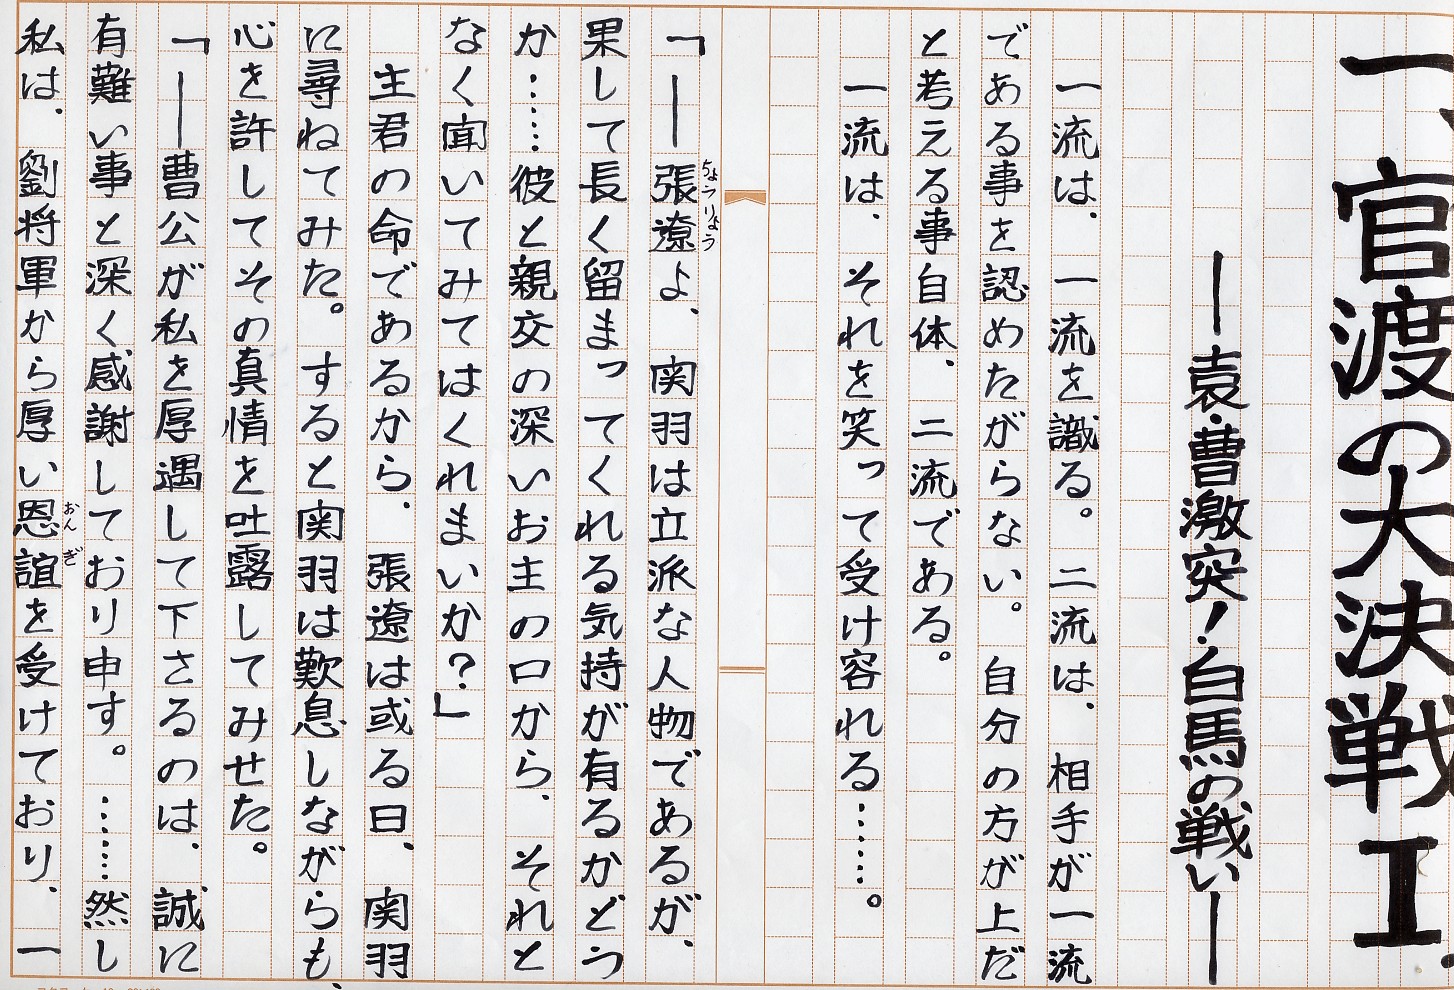 一、官渡の大決戦Ⅰ
―袁・曹激突！・白馬の戦い―
一流は、一流を識る。二流は、相手が一流
である事を認めたがらない。自分の方が上だ
と考える事自体、二流である。
一流は、それを笑って受け容れる……。
「―張遼よ、関羽は立派な人物であるが、
ちょうりょう
果して長く留まってくれる気持が有るかどう
か……彼と親交の深いお主の口から、それと
なく聞いてみてはくれまいか？」
主君の命であるから、張遼は或る日、関羽
に尋ねてみた。すると関羽は歎息しながらも、
心を許してその真情を吐露してみせた。
「―曹公が私を厚遇して下さるのは、誠に
有難い事と深く感謝しており申す。……然し
私は、劉将軍から厚い恩誼を受けており、一
おんぎ